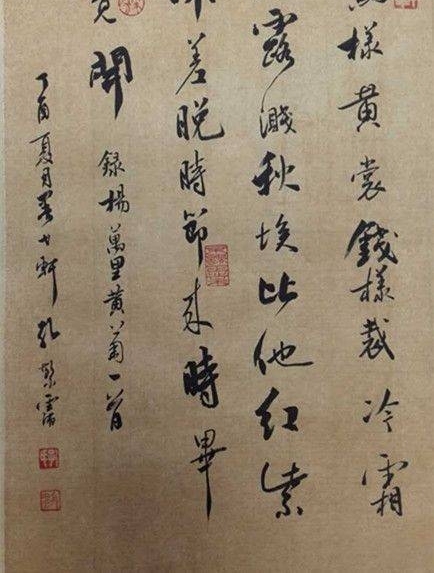 樣黄裳錢樣裁冷霜
露濺秋埃比他紅紫
差晚時節来時畢
開 録楊萬里黄菊一首
丁酉夏月軒孔繁霈